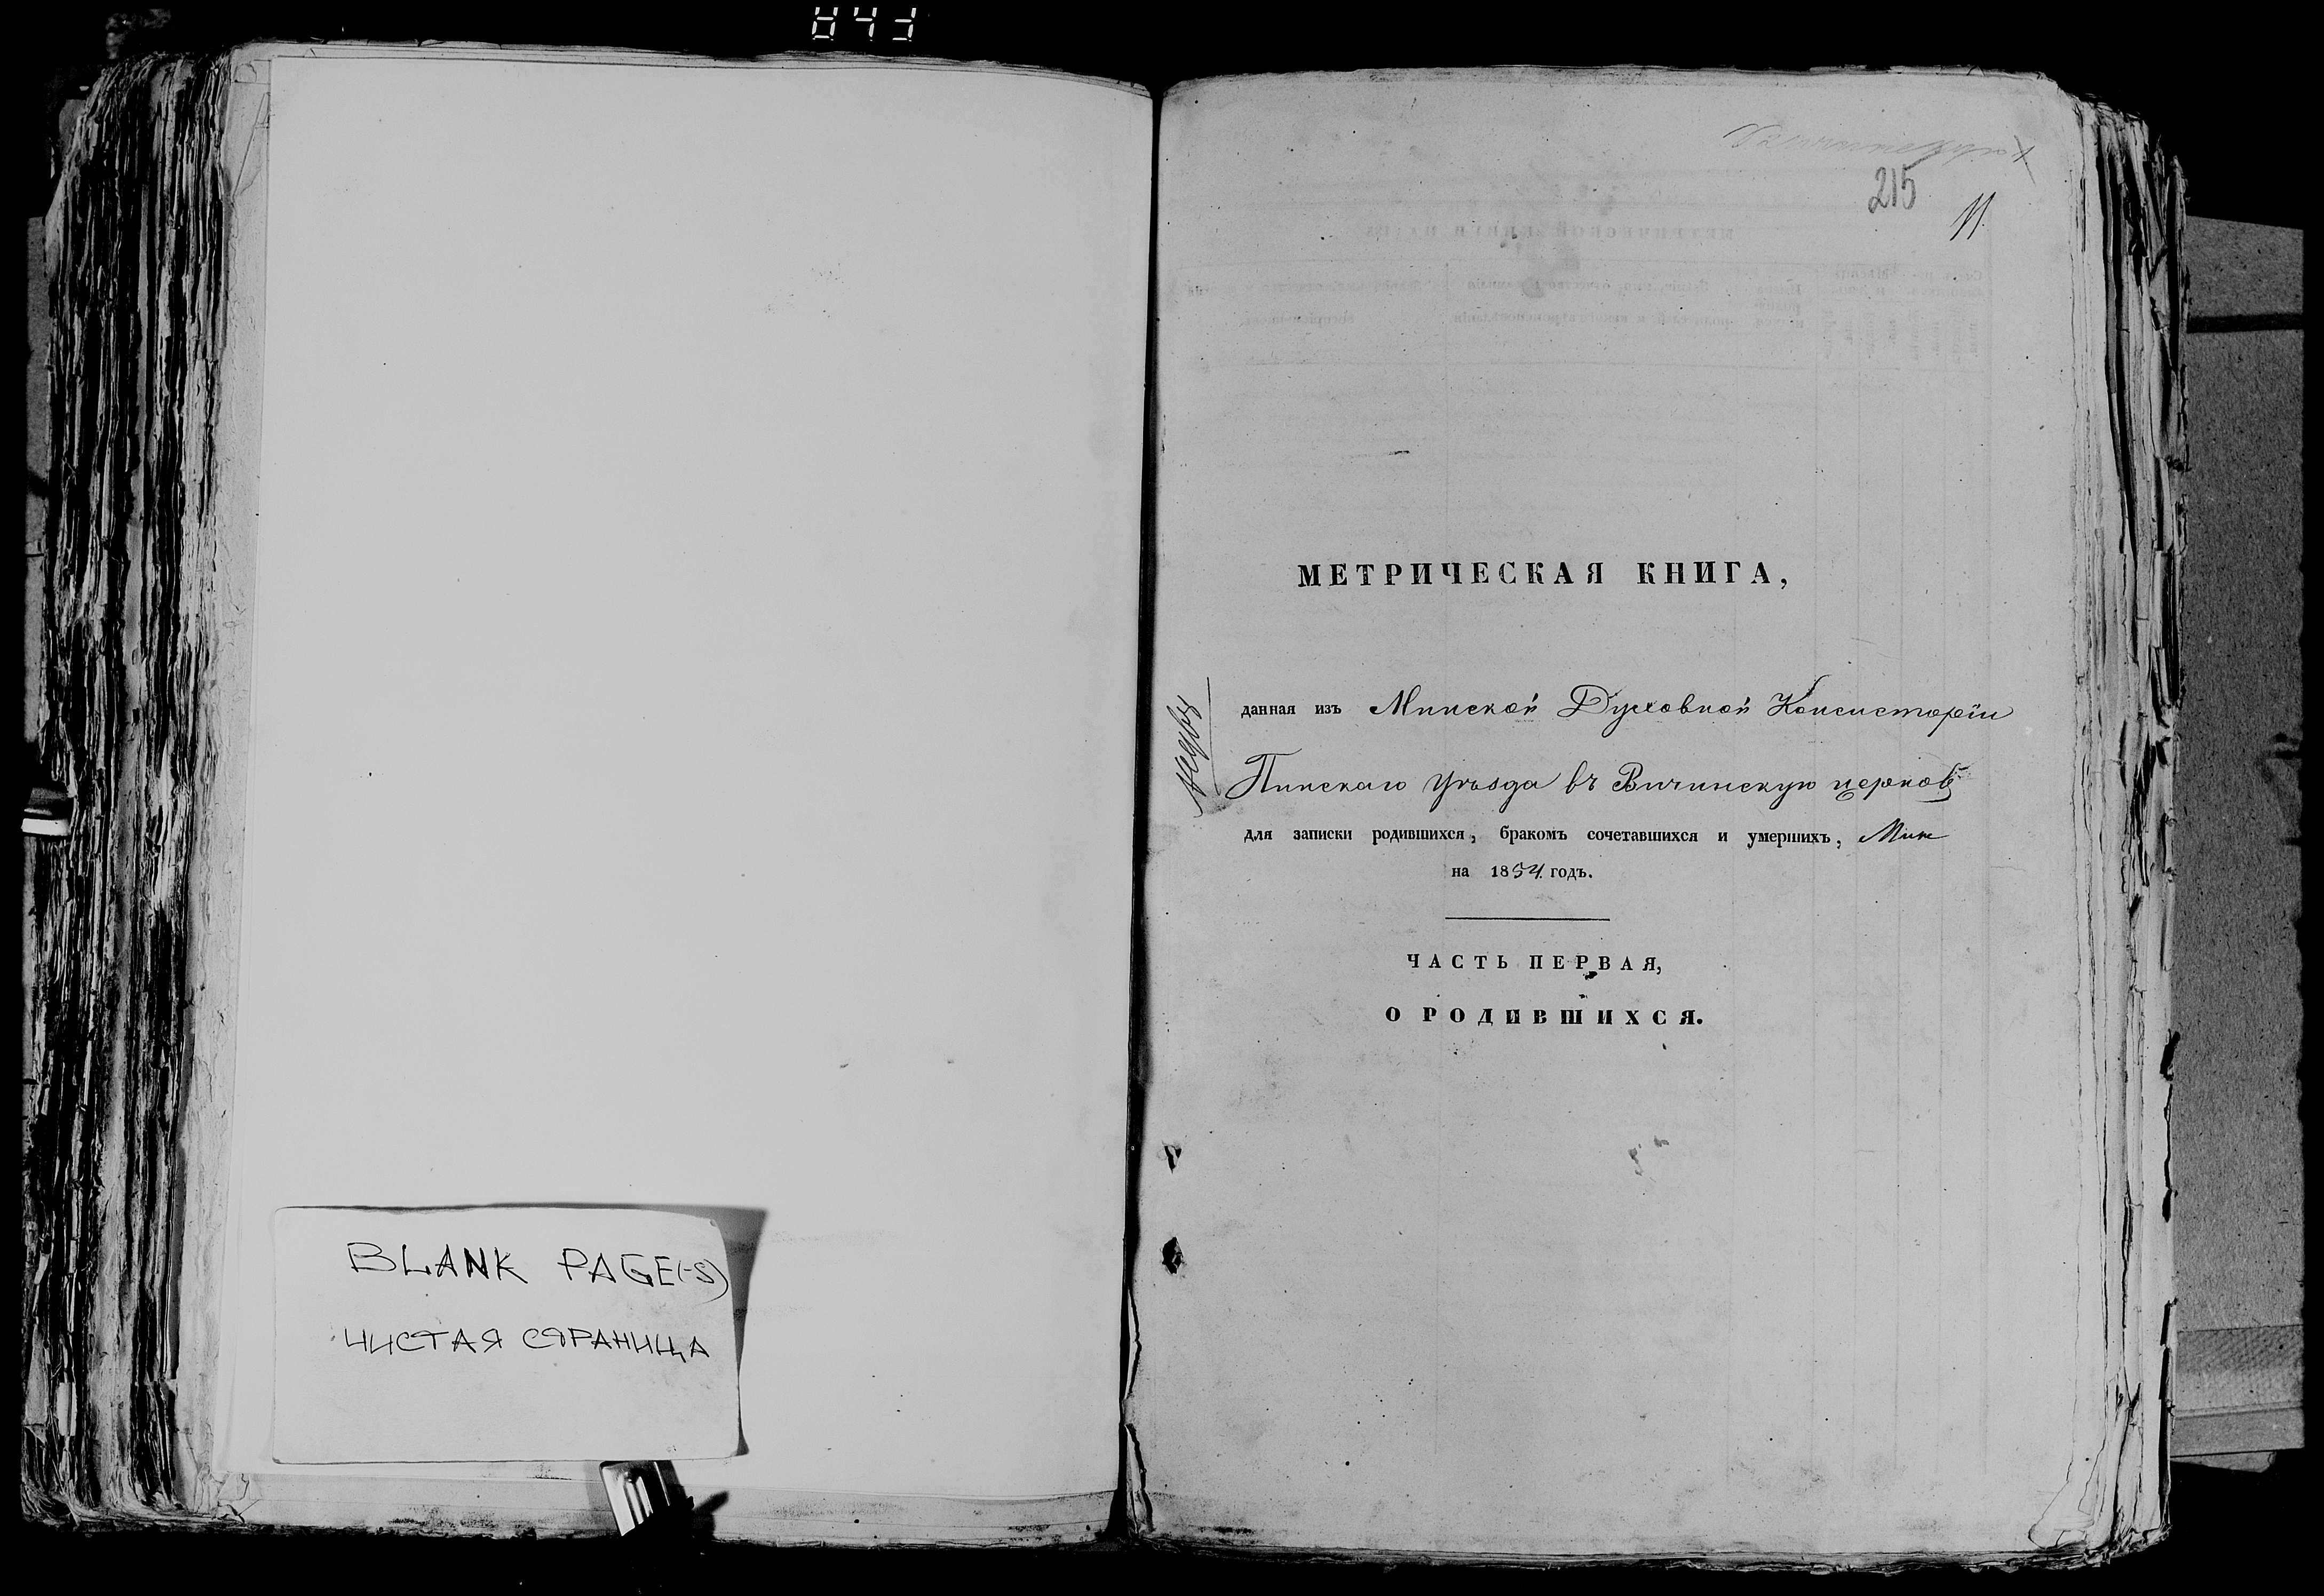 BLANK PAGE(-S)
ЧИСТАЯ СТРАНИЦА
215
11.
МЕТРИЧЕСКАЯ КНИГА,
данная изъ Минской Духовной Консисторіи
Пинскаго уѣзда въ Вичинскую церковь
для записки родившихся, бракомъ сочетавшихся и умершихъ,
на 1854 годъ.
ЧАСТЬ ПЕРВАЯ,
О РОДИВШИХСЯ.